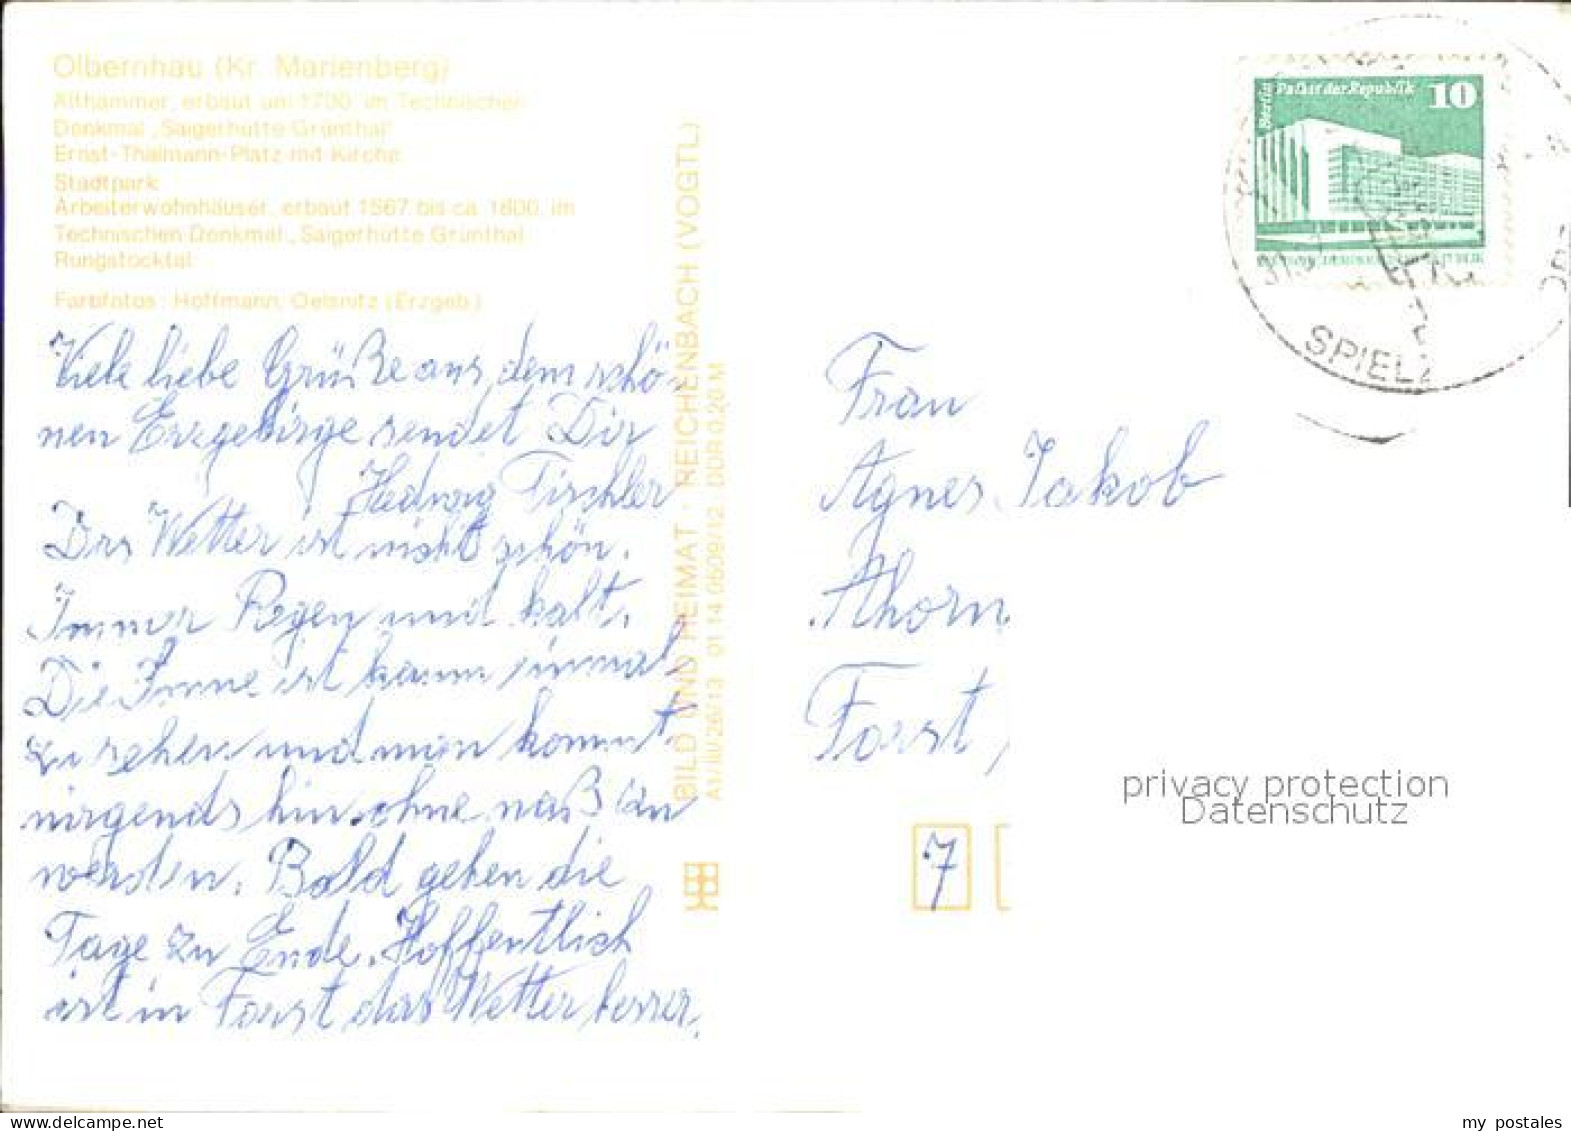 Olbernhau (Kr. Marienberg)
Althammer, erbaut um 1700, im Technischen
Denkmal „Saigerhütte Grünthal"
Ernst-Thälmann-Platz mit Kirche
Stadtpark
Arbeiterwohnhäuser, erbaut 1567 bis ca. 1800, im
Technischen Denkmal „Saigerhütte Grünthal
Rungstocktal
Farbfotos: Hoffmann, Oelsnitz (Erzgeb.)
Viele liebe Grüße aus dem schö-
nen Erzgebirge sendet Dir
Hedwig Tischler
Das Wetter ist nicht schön.
Immer Regen und kalt.
Die Sonne ist kaum einmal
zu sehen und man kommt
nirgends hin ohne naß zu
werden. Bald gehen die
Tage zu Ende. Hoffentlich
ist in Forst das Wetter besser.
BILD UND HEIMAT · REICHENBACH (VOGTL)
A1/III/26/13 01 14 0509/12 DDR 0,20 M
Berlin
Palast der Republik 10
SPIELZ
Frau
Agnes Jakob
Ahorn
Forst,
7
privacy protection
Datenschutz
my_postales